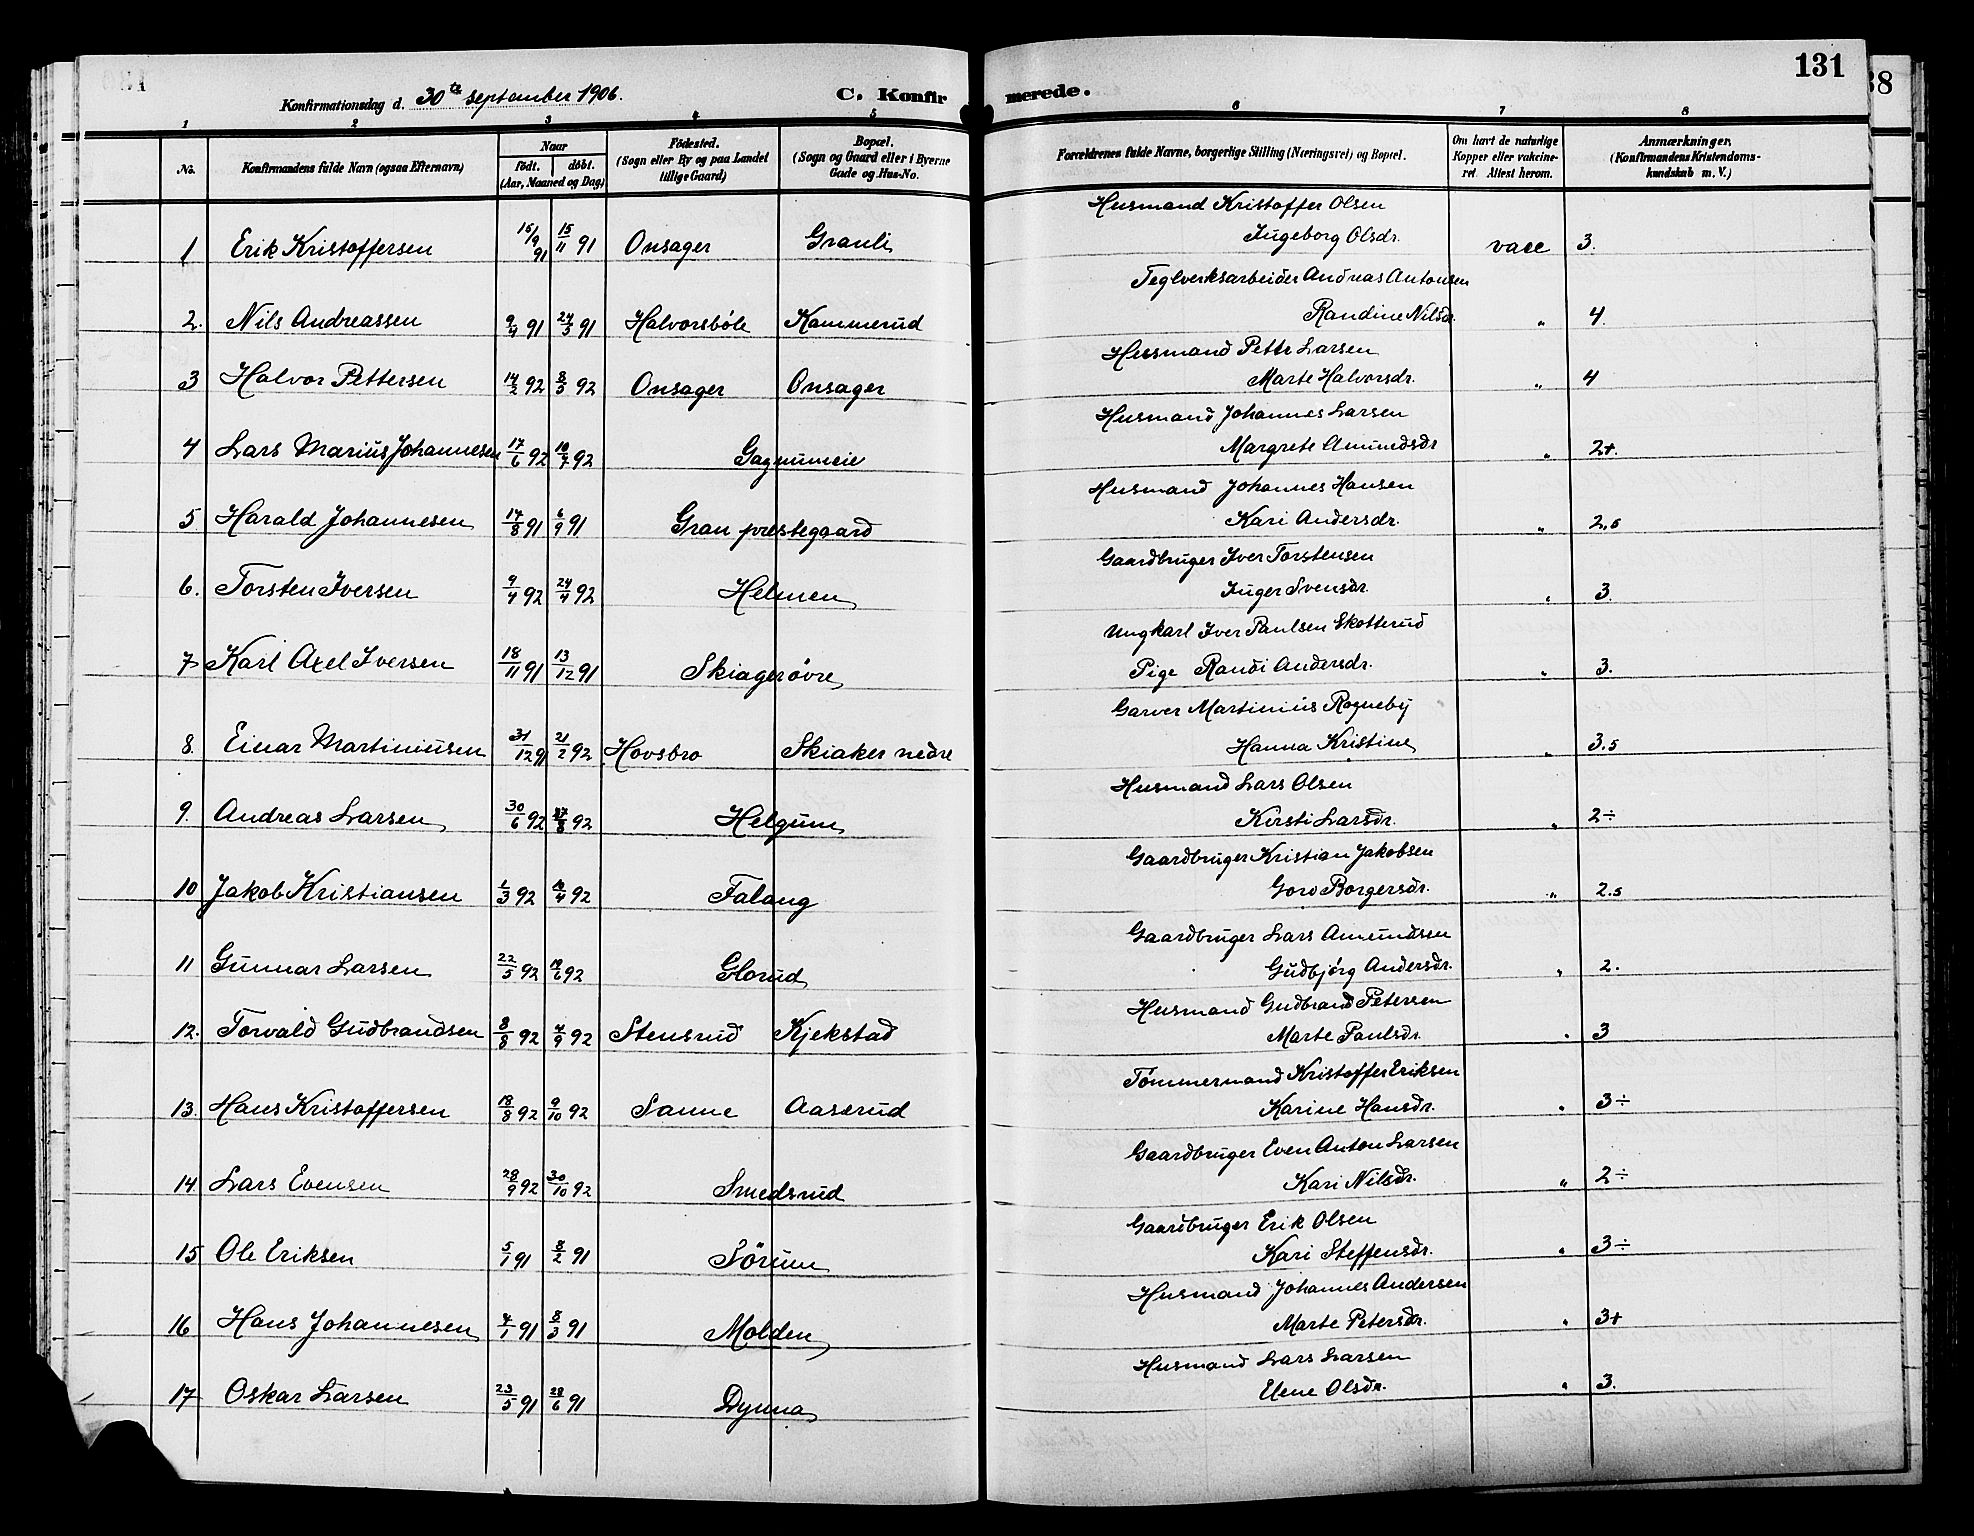 131
38
Konfirmationsdag d. 30te september 1906. C. Konfirmerede.
1 2 3 4 5 6 7 8
No. Konfirmandens fulde Navn (ogsaa Efternavn) Naar födt. döbt. (Aar, Maaned og Dag) Födested. (Sogn eller By og paa Landet tillige Gaard) Bopæl. (Sogn og Gaard eller i Byerne Gade og Hus-No. Forældrenes fulde Navne, borgerlige Stilling (Næringsvei) og Bopæl. Om havt de naturlige Kopper eller vakcineret. Attest herom. Anmærkninger. (Konfirmandens Kristendomskundskab m. V.)
Husmand Kristoffer Olsen
1 Erik Kristoffersen 16/9 91 15/11 91 Onsager Granli Ingeborg Olsdr. vacc 3.
Teglverksarbeider Andreas Antonsen
2. Nils Andreassen 9/4 91 24/5 91 Halvorsböle Kammerud Randine Nilsdr. " 4.
Husmand Petter Larsen
3 Halvor Pettersen 14/2 92 8/5 92 Onsager Onsager Marte Halvorsdr. " 4
Husmand Johannes Larsen
4 Lars Marius Johannesen 17/6 92 10/7 92 Gagnumeie Margrete Amundsdr " 2+.
Husmand Johannes Hansen
5 Harald Johannesen 14/8 91 6/9 91 Gran prestegaard Kari Andersdr. " 2.5
Gaardbruger Iver Torstensen
6. Torsten Iversen 9/4 92 24/4 92 Helmen Inger Svensdr. " 3.
Ungkarl Iver Paulsen Skotterud
7 Karl Axel Iversen 18/11 91 13/12 91 Skiager övre Pige Randi Andersdr. " 3.
Garver Martinius Rogneby
8. Einar Martiniusen 31/12 91 21/2 92 Hovsbro Skiaker nedre Hanna Kristine " 3.5
Husmand Lars Olsen
9. Andreas Larsen 30/6 92 27/8 92 Helgum Kirsti Larsdr. " 2÷
Gaardbruger Kristian Jakobsen
10 Jakob Kristiansen 1/3 92 10/4 92 Falang Goro Borgersdr. " 2.5
Gaardbruger Lars Amundsen
11 Gunnar Larsen 22/5 92 19/6 92 Glorud Gudbjörg Andersdr. " 2.
Husmand Gudbrand Petersen
12. Torvald Gudbrandsen 8/8 92 4/9 92 Stensrud Kjekstad Marte Paulsdr. " 3
Tömmermand Kristoffer Eriksen
13. Hans Kristoffersen 18/8 92 9/10 92 Sanne Aaserud Karine Hansdr. " 3÷
Gaardbruger Even Anton Larsen
14. Lars Evensen 28/9 92 30/10 92 Smedsrud Kari Nilsdr. " 2÷
Gaardbruger Erik Olsen
15 Ole Eriksen 5/1 91 8/2 91 Sörum Kari Steffensdr. " 3÷
Husmand Johannes Andersen
16 Hans Johannesen 4/1 91 8/3 91 Molden Marte Petersdr. " 3+
Husmand Lars Larsen
17 Oskar Larsen 23/5 91 28/6 91 Dynna Elene Olsdr. " 3.